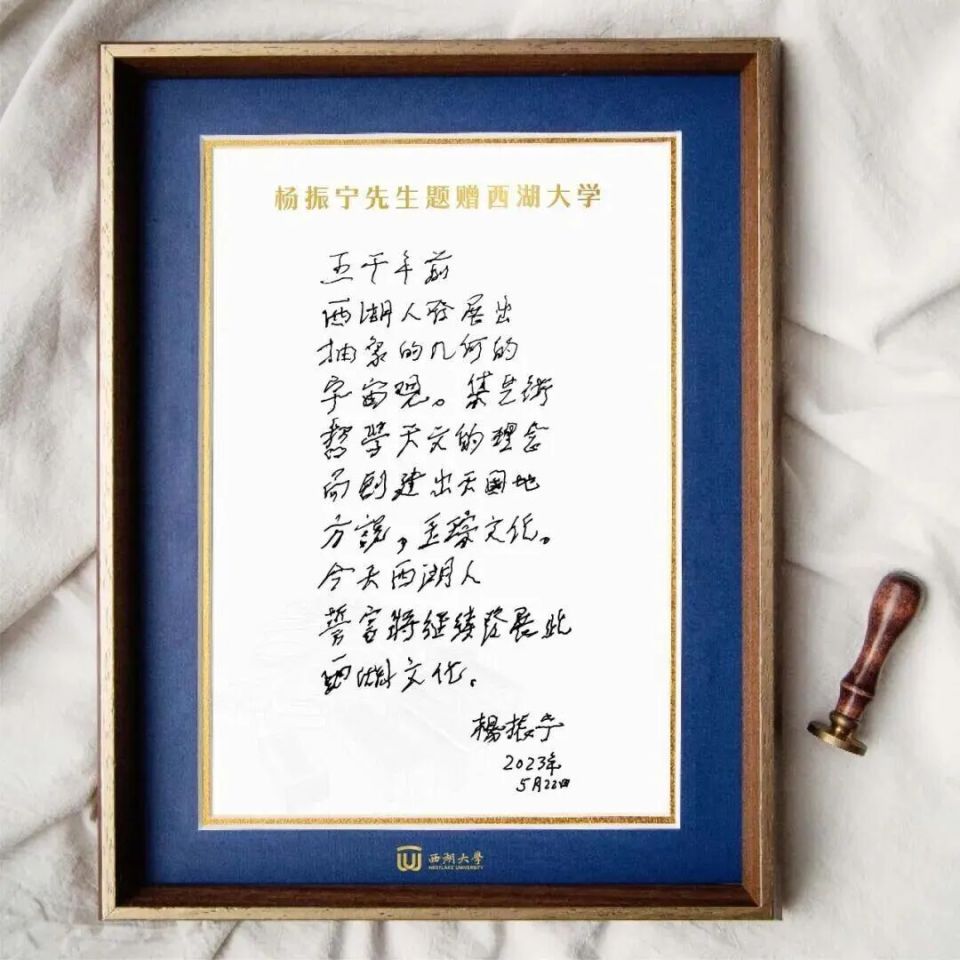 杨振宁先生题赠西湖大学
五千年前
西湖人發展出
抽象的几何的
宇宙观。集艺術
哲學天文的理念
而創建出天圓地
方說，玉琮文化。
今天西湖人
誓言將继續發展此
西湖文化。
楊振宁
2023年
5月22日
西湖大學
WESTLAKE UNIVERSITY